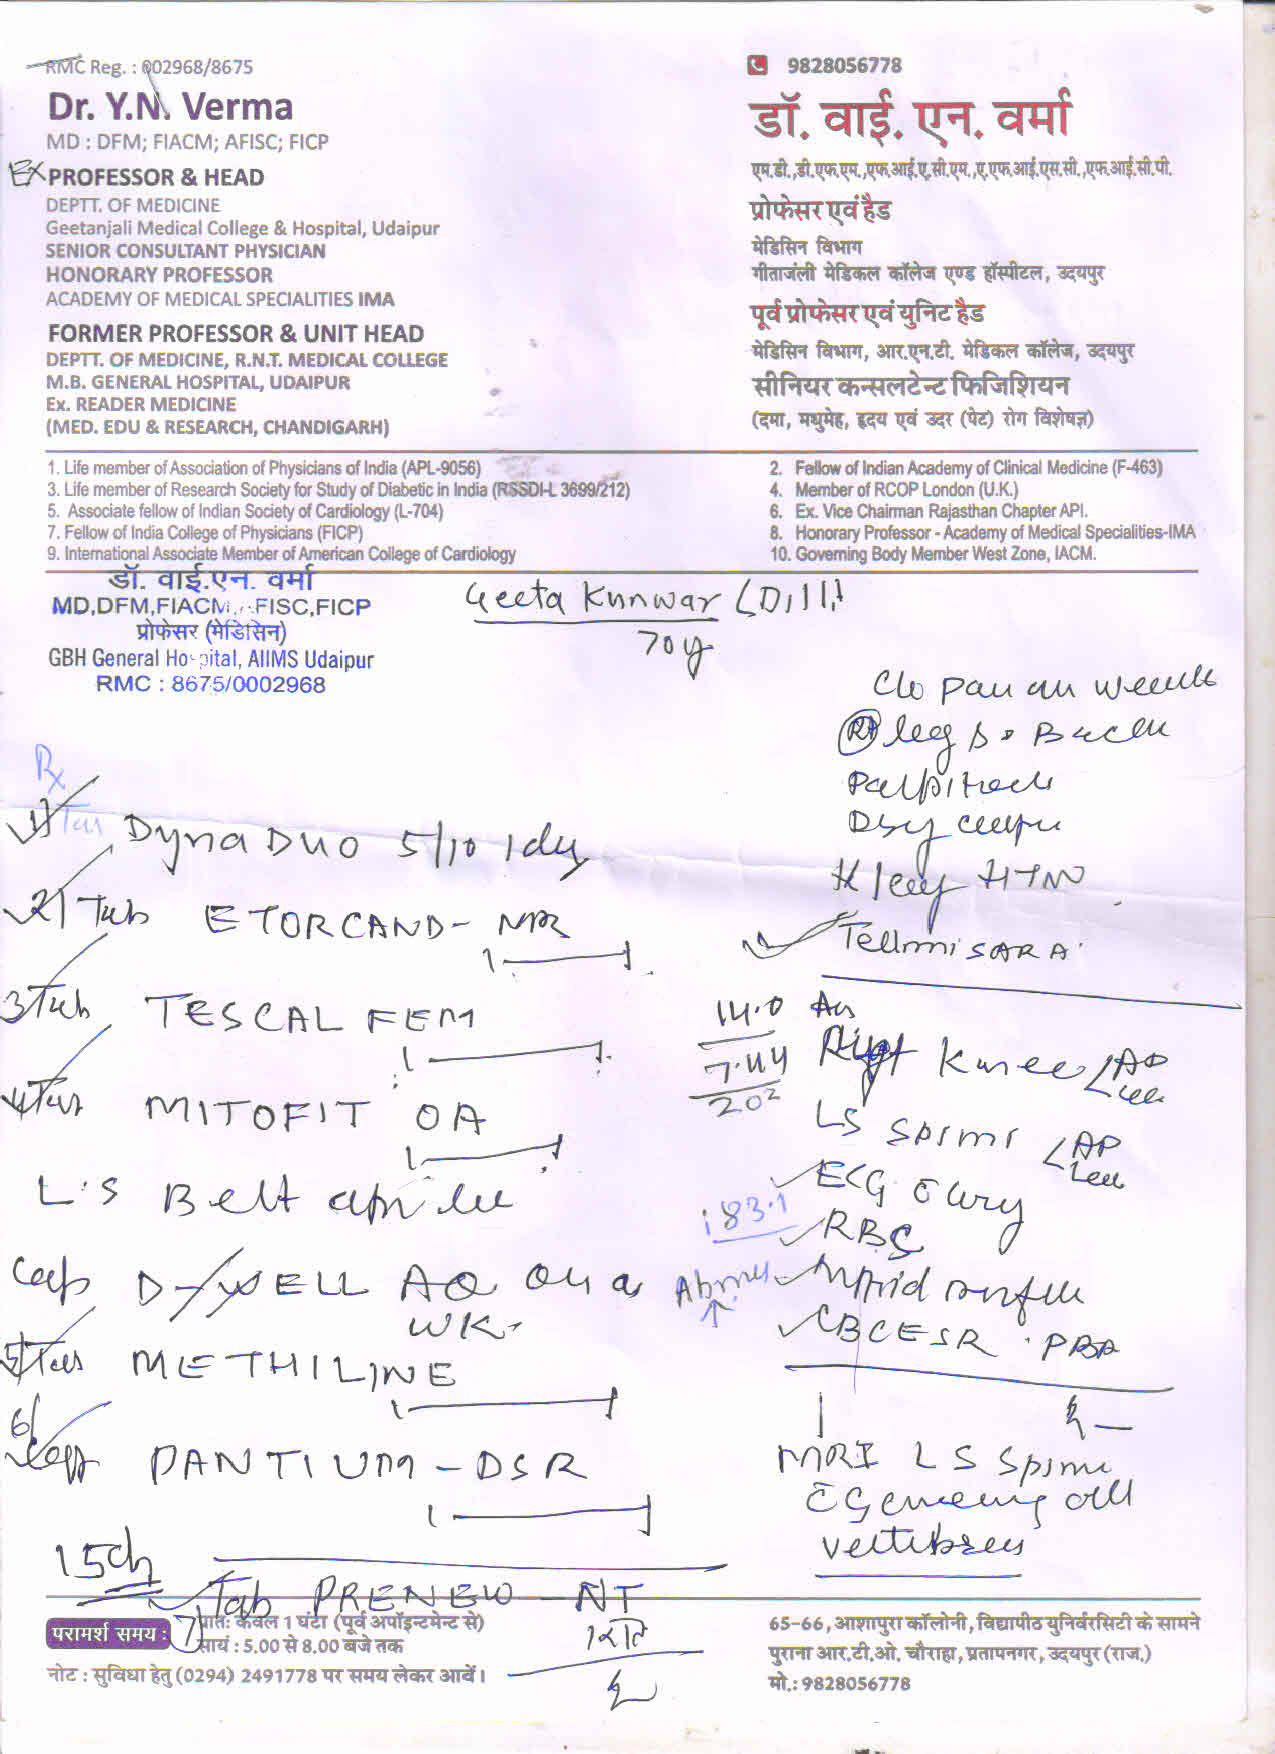 RMC Reg. : 002968/8675
Dr. Y.N. Verma
MD : DFM; FIACM; AFISC; FICP
Ex PROFESSOR & HEAD
DEPTT. OF MEDICINE
Geetanjali Medical College & Hospital, Udaipur
SENIOR CONSULTANT PHYSICIAN
HONORARY PROFESSOR
ACADEMY OF MEDICAL SPECIALITIES IMA
FORMER PROFESSOR & UNIT HEAD
DEPTT. OF MEDICINE, R.N.T. MEDICAL COLLEGE
M.B. GENERAL HOSPITAL, UDAIPUR
Ex. READER MEDICINE
(MED. EDU & RESEARCH, CHANDIGARH)
9828056778
डॉ. वाई. एन. वर्मा
एम.डी.,डी.एफ.एम.,एफ.आई.ए.सी.एम.,ए.एफ.आई.एस.सी.,एफ.आई.सी.पी.
प्रोफेसर एवं हैड
मेडिसिन विभाग
गीताजंली मेडिकल कॉलेज एण्ड हॉस्पीटल, उदयपुर
पूर्व प्रोफेसर एवं युनिट हैड
मेडिसिन विभाग, आर.एन.टी. मेडिकल कॉलेज, उदयपुर
सीनियर कन्सलटेन्ट फिजिशियन
(दमा, मधुमेह, हृदय एवं उदर (पेट) रोग विशेषज्ञ)
1. Life member of Association of Physicians of India (APL-9056)
2. Fellow of Indian Academy of Clinical Medicine (F-463)
3. Life member of Research Society for Study of Diabetic in India (RSSDI-L 3699/212)
4. Member of RCOP London (U.K.)
5. Associate fellow of Indian Society of Cardiology (L-704)
6. Ex. Vice Chairman Rajasthan Chapter API.
7. Fellow of India College of Physicians (FICP)
8. Honorary Professor - Academy of Medical Specialities-IMA
9. International Associate Member of American College of Cardiology
10. Governing Body Member West Zone, IACM.
डॉ. वाई.एन. वर्मा
MD,DFM,FIACM, AFISC,FICP
प्रोफेसर (मेडिसिन)
GBH General Hospital, AIIMS Udaipur
RMC : 8675/0002968
Geeta Kunwar
70y
C/o Pain
Rt leg
HTN
Rx
1) Tab DynaDUO 5/10 1 day
2) Tab ETORCAND-MR
3 Tab TESCAL FEM
4 Tab MITOFIT OA
L.S Belt
Cap D-WELL AQ on a
WK.
5) Tab METHILINE
6) Cap PANTIUM-DSR
15
7) Tab PRENEW-NT
14.0
7.44
202
Right Knee AP
LS Spine AP
ECG
183.1
RBS
CBC ESR
MRI LS Spine
परामर्श समय :
प्रातः केवल 1 घंटा (पूर्व अपॉइन्टमेन्ट से)
सायं : 5.00 से 8.00 बजे तक
नोट : सुविधा हेतु (0294) 2491778 पर समय लेकर आवें।
65-66, आशापुरा कॉलोनी, विद्यापीठ युनिर्वरसिटी के सामने
पुराना आर.टी.ओ. चौराहा, प्रतापनगर, उदयपुर (राज.)
मो.: 9828056778